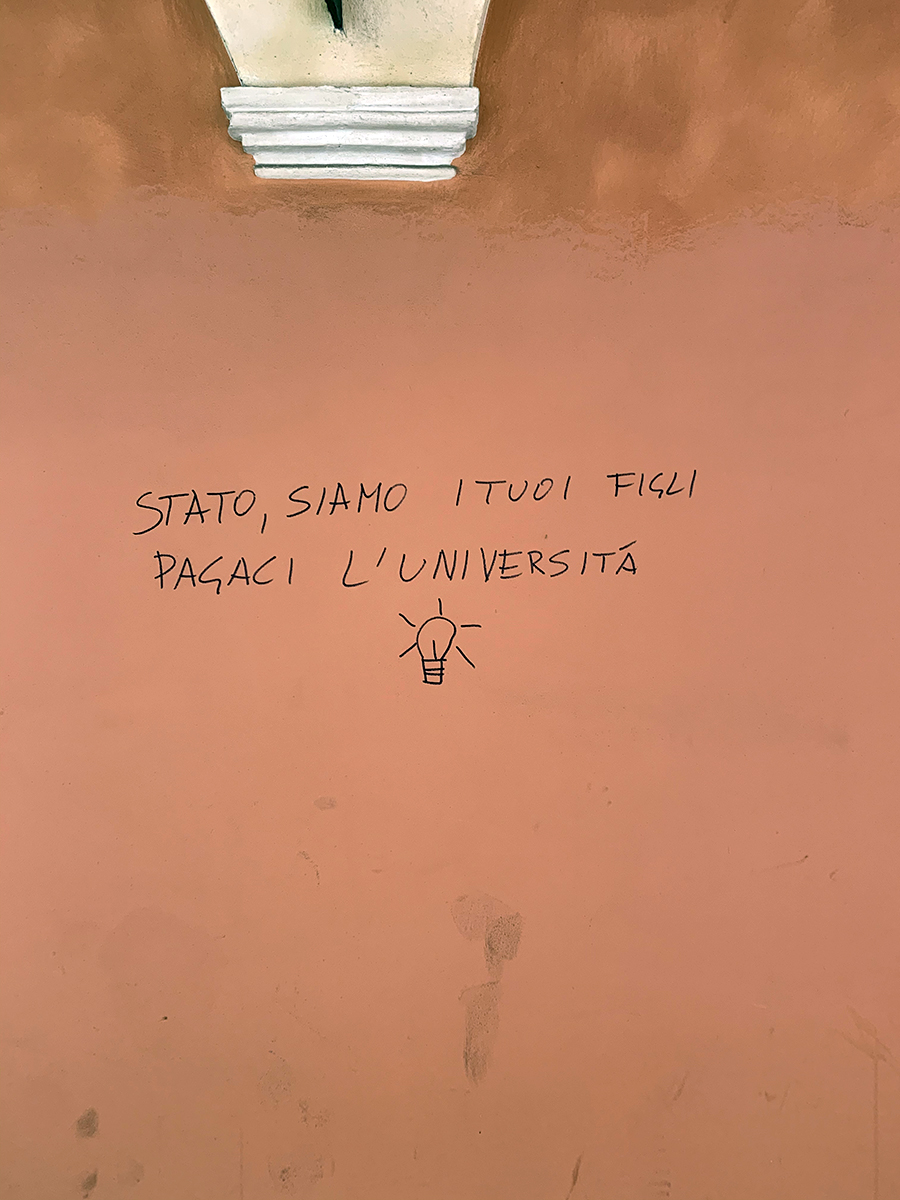 STATO, SIAMO I TUOI FIGLI
PAGACI L'UNIVERSITÁ